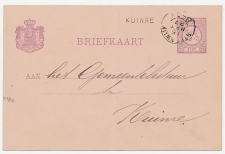 KUINRE
BRIEFKAART
AAN het Gemeentebestuur
te
Kuinre